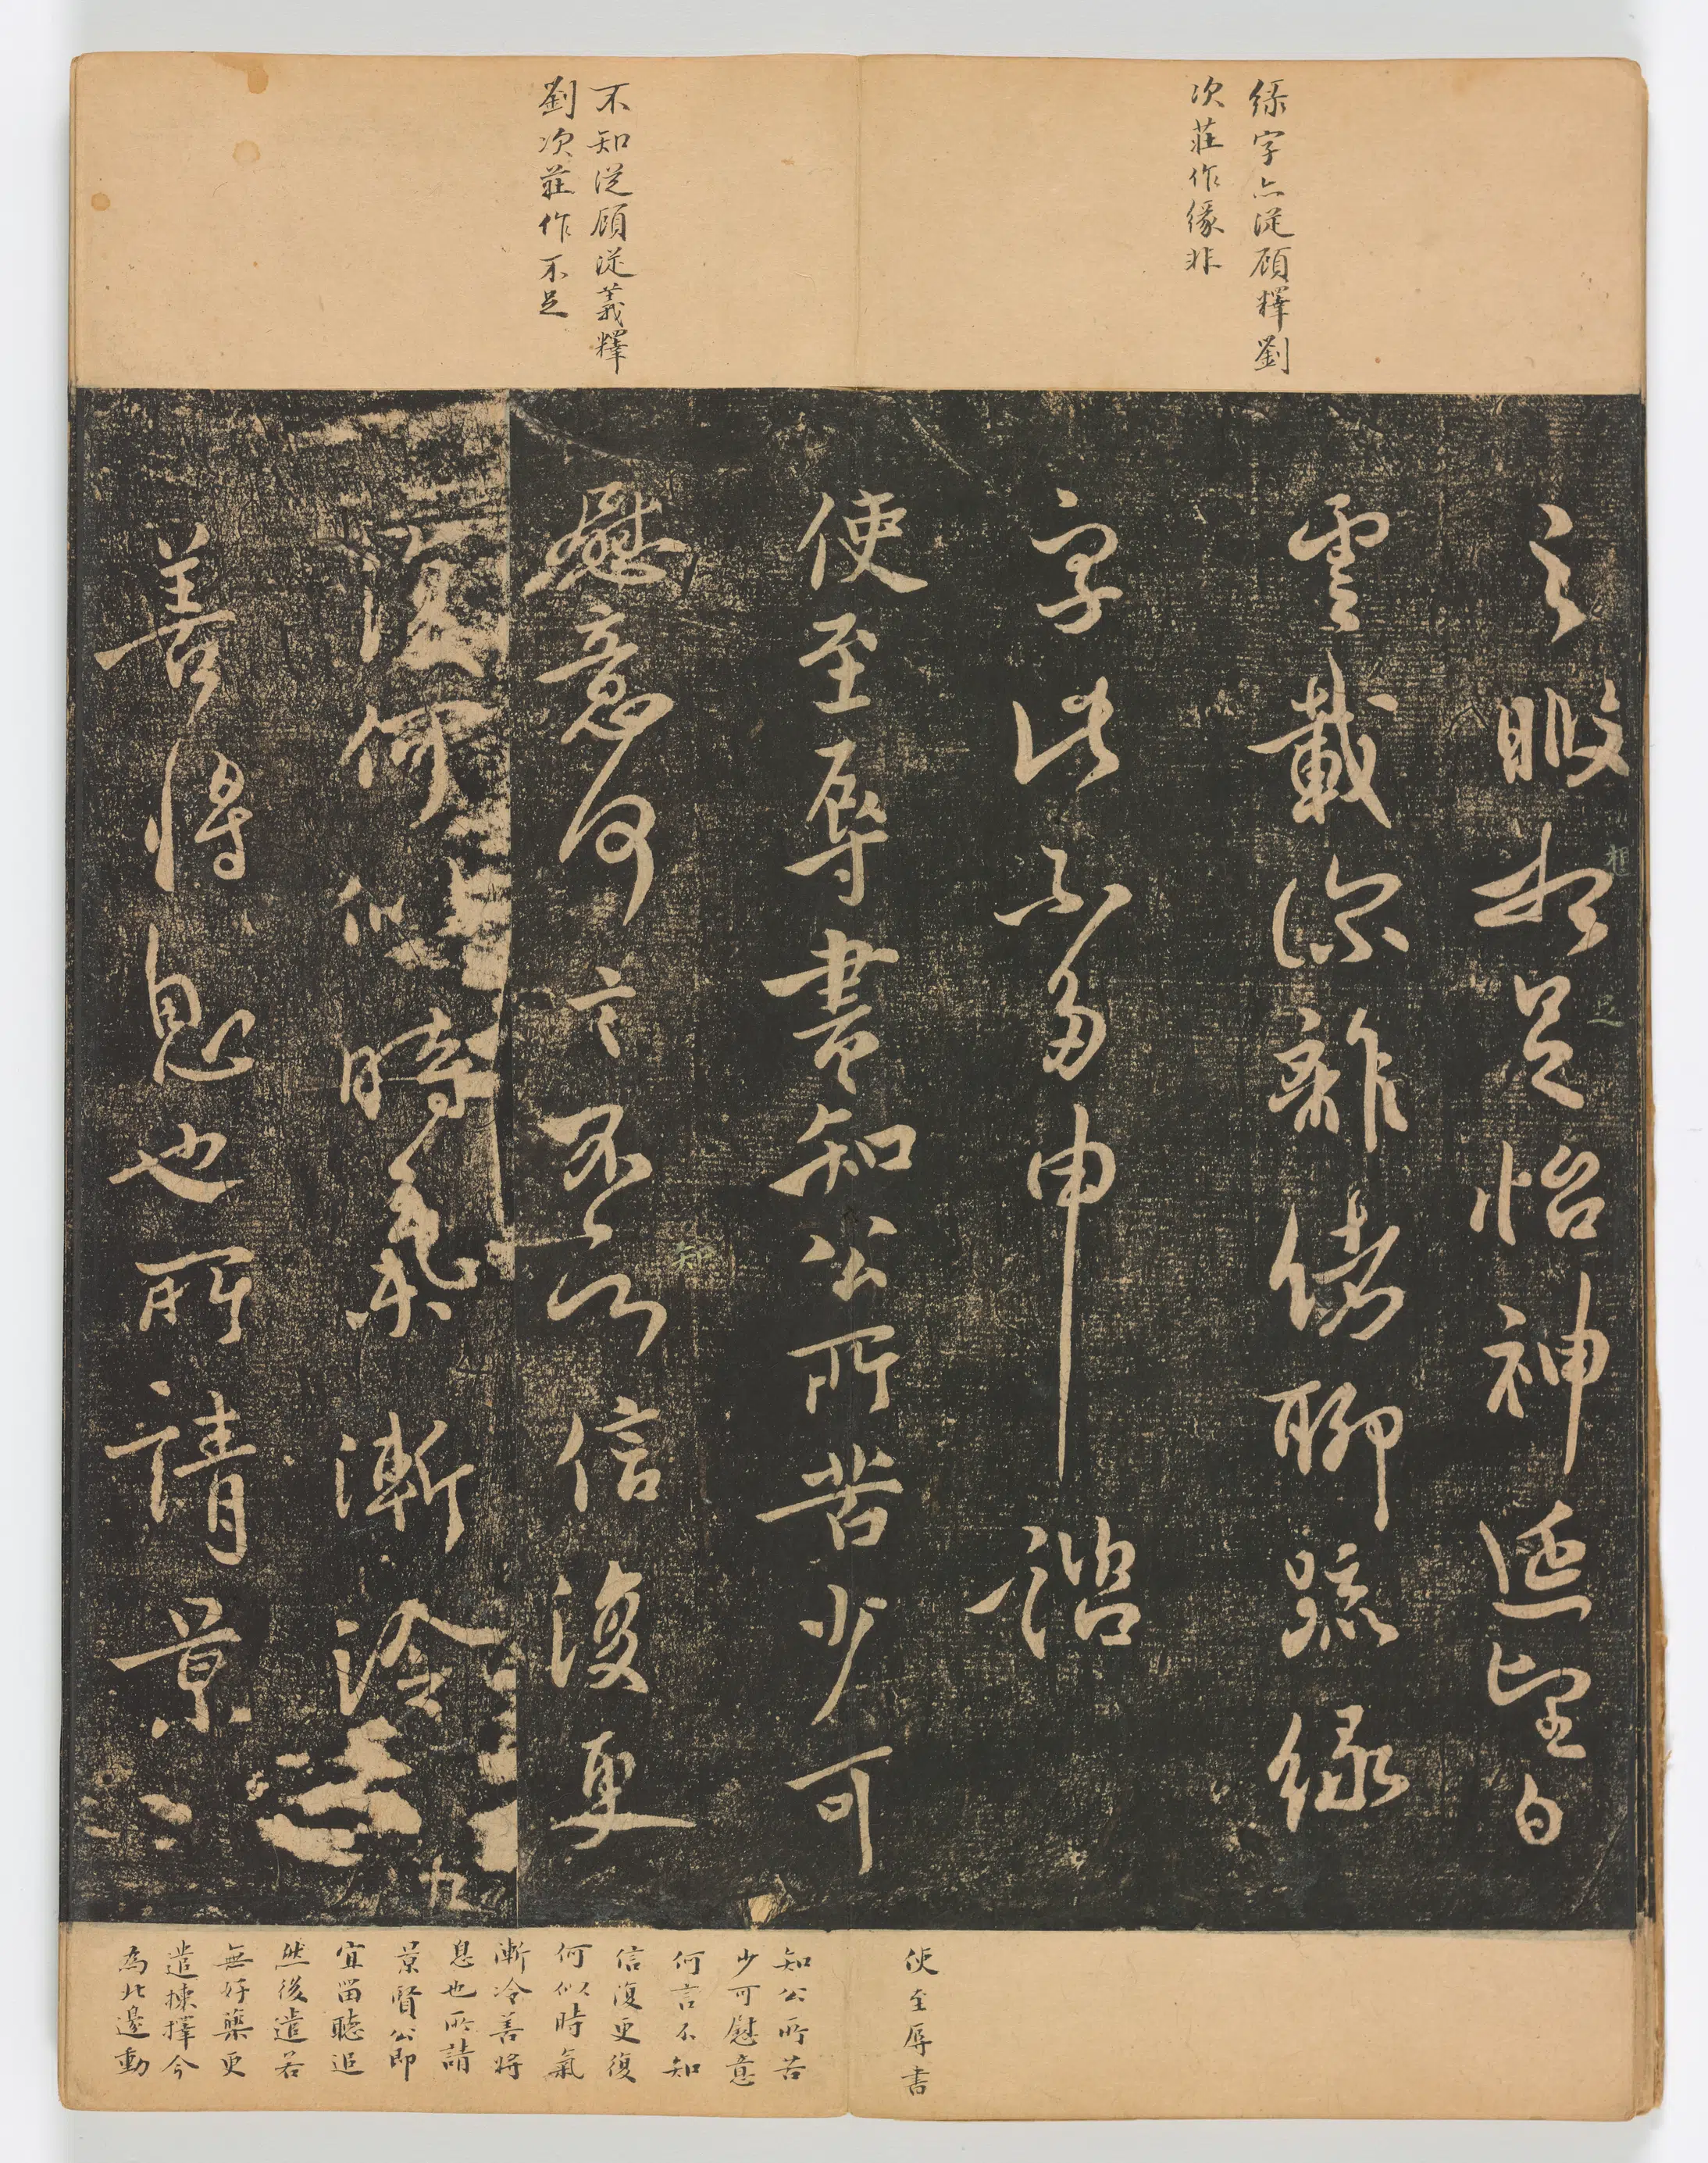 綠字亦從顧釋劉
次莊作緣非
不知從顧從義釋
劉次莊作不足
之暇想足怡神延望白
相
雲載深離緒聊疏綠
字此不多申 諮
使至辱書知公所苦少可
慰意何言不知信復更
知
復何似時氣漸冷
九
善將息也所請景
使至辱書
知公所苦
少可慰意
何言不知
信復更復
何似時氣
漸冷善將
息也所請
景賢公即
宜留聽追
然後遣若
無好藥更
遣揀擇今
為北邊動